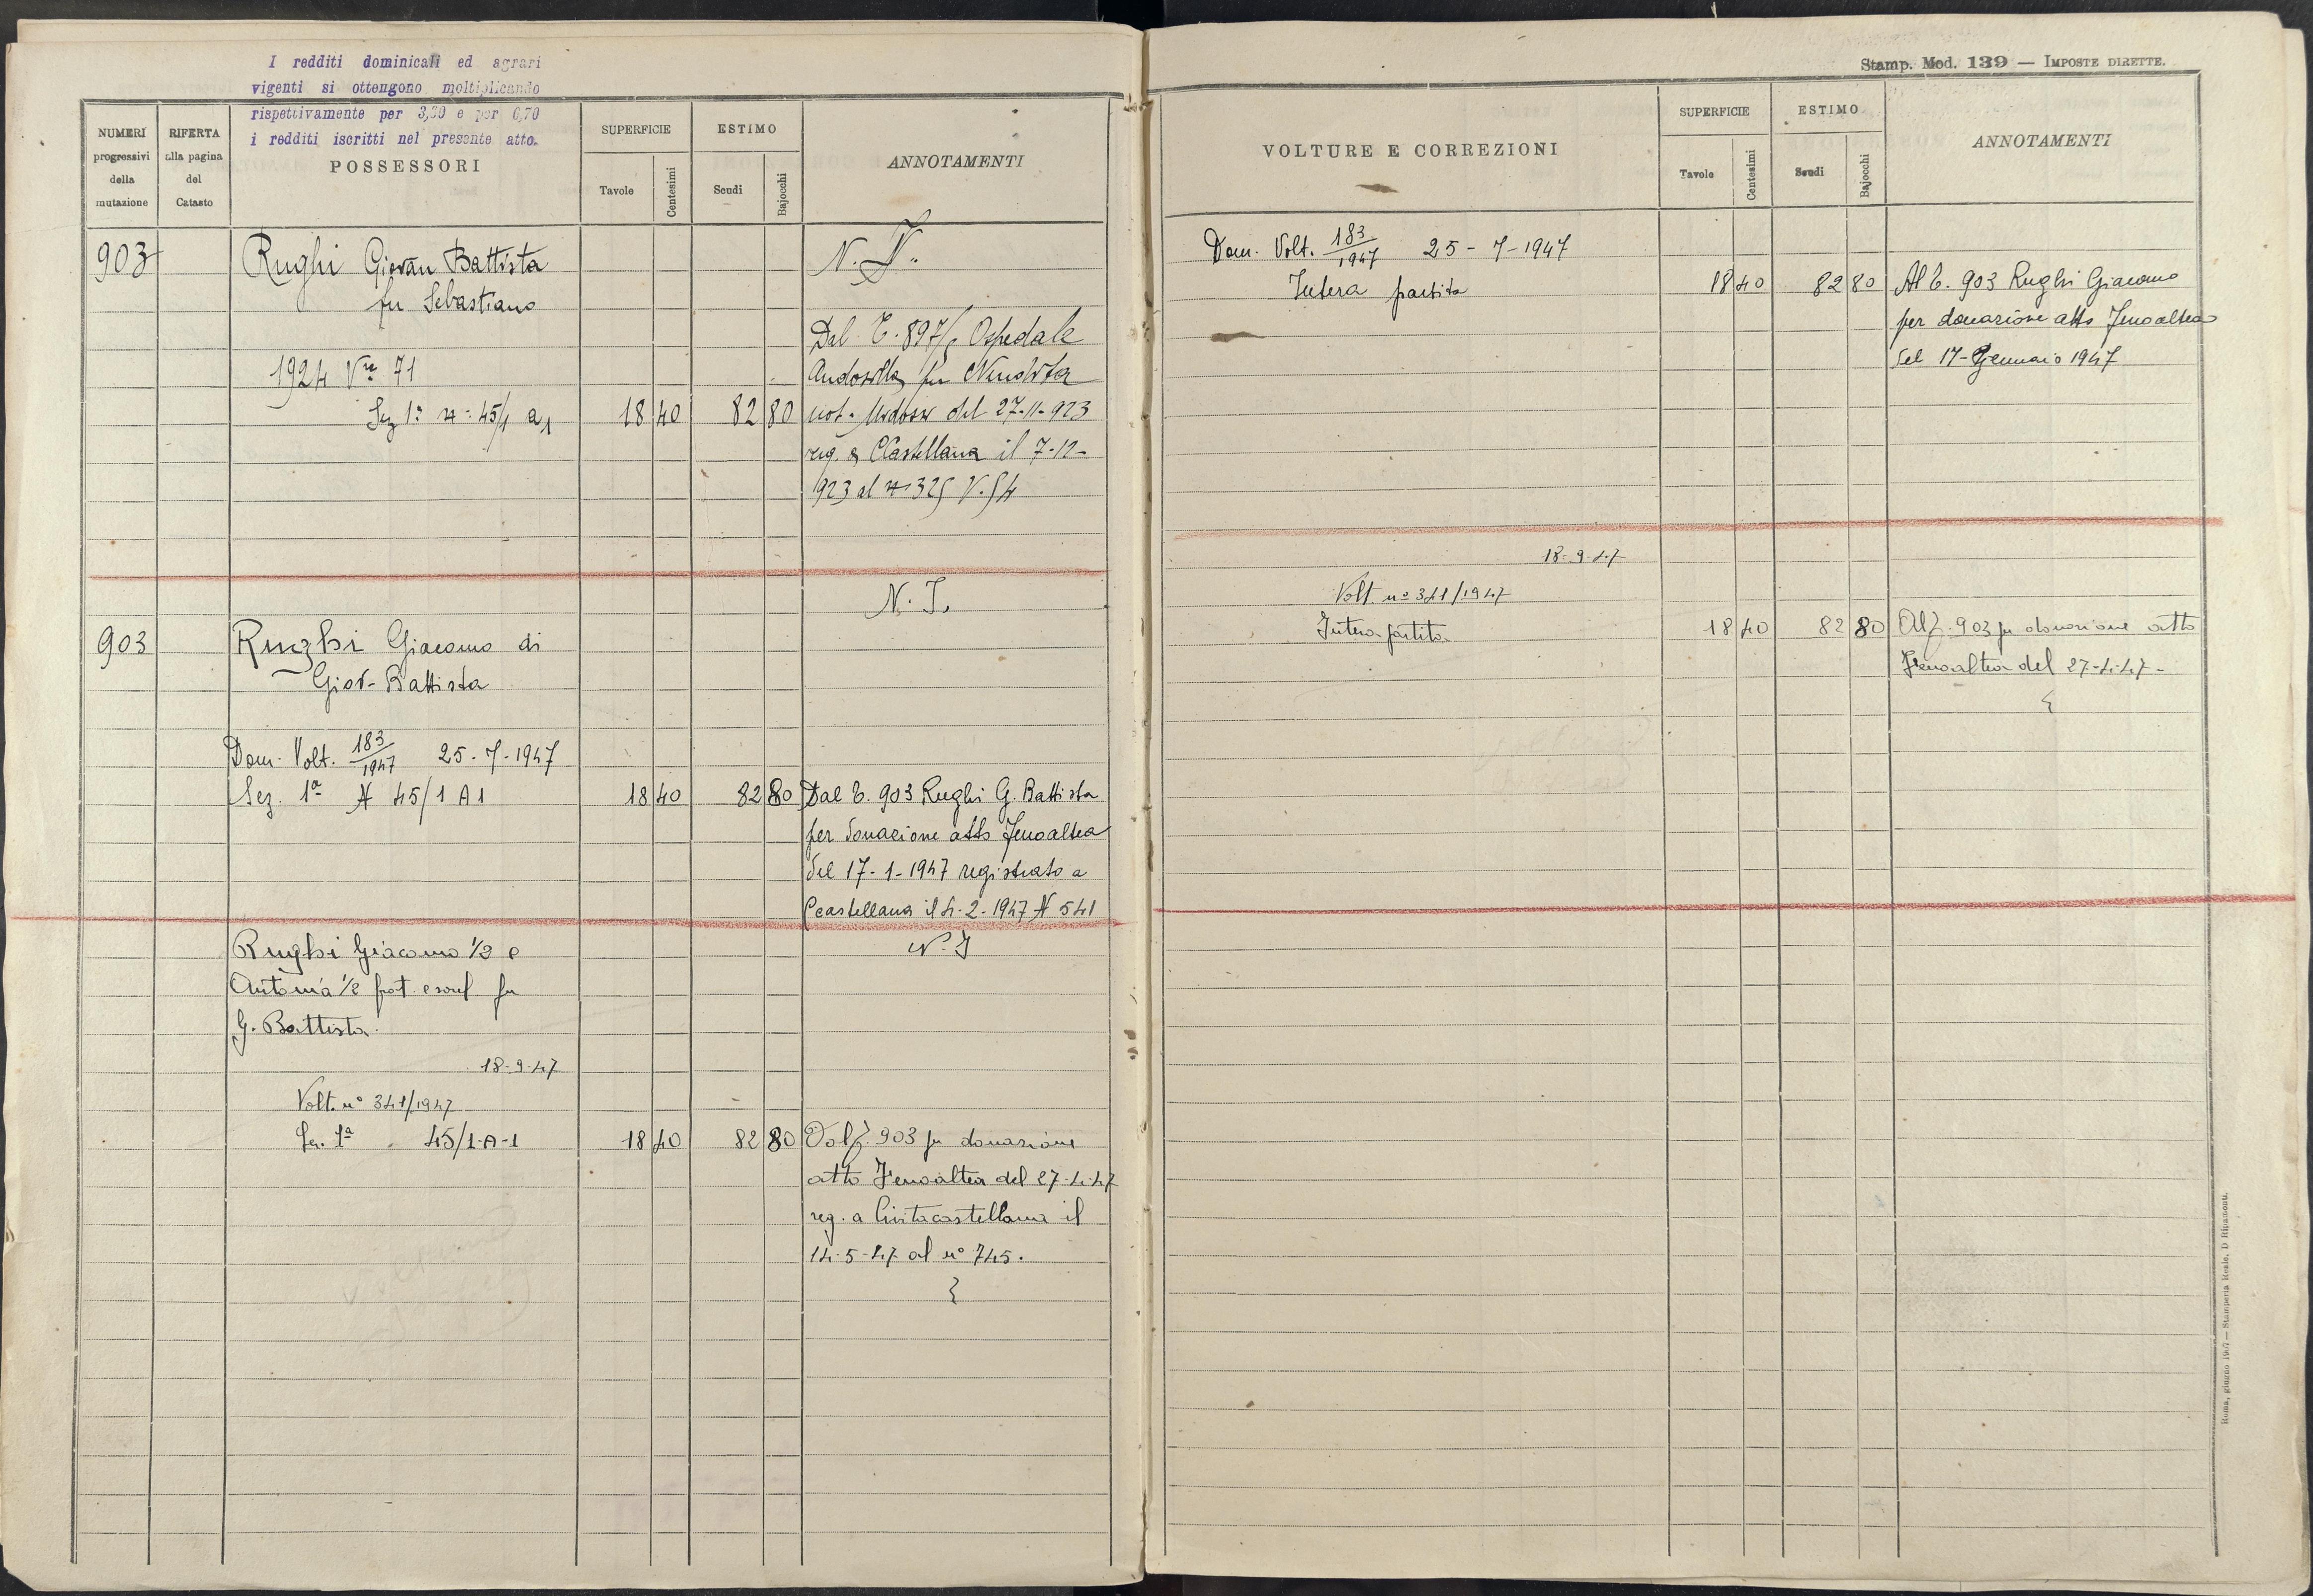 I redditi dominicali ed agrari
vigenti si ottengono moltiplicando
rispettivamente per 3,30 e per 0,70
i redditi iscritti nel presente atto.
NUMERI progressivi della mutazione
RIFERTA alla pagina del Catasto
POSSESSORI
SUPERFICIE
Tavole Centesimi
ESTIMO
Scudi Bajocchi
ANNOTAMENTI
903 Rughi Giovan Battista
fu Sebastiano
N.
Dal T. 897/5 Ospedale
1924 Vra 71
Sez 1a n= 45/1 a1 18 40 82 80
not. del 27-11-923
reg. a CCastellana il 7-12-
923 al n 325 V. 54
N. I.
903 Rughi Giacomo di
Giov- Battista
Dom. Volt. 183/1947 25-7-1947
Sez. 1a N 45/1 A1 18 40 82 80 Dal T. 903 Rughi G. Battista
per donazione atto Fenoaltea
del 17-1-1947 registrato a
Ccastellana il 4-2-1947 N 541
N. I
Rughi Giacomo 1/2 e
Antonia 1/2 frat. e sorel fu
G. Battista
18-9-47
Volt. n° 341/1947
Sez. 1a 45/1-A-1 18 40 82 80 Dal T. 903 per donazione
atto Fenoaltea del 27-4-47
reg. a Civitacastellana il
14-5-47 al n° 745.
Stamp. Mod. 139 — IMPOSTE DIRETTE.
VOLTURE E CORREZIONI
SUPERFICIE
Tavole Centesimi
ESTIMO
Scudi Bajocchi
ANNOTAMENTI
Dom. Volt. 183/1947 25-7-1947
Intera partita 18 40 82 80 Al T. 903 Rughi Giacomo
per donazione atto Fenoaltea
del 17-Gennaio 1947
18-9-47
Volt n° 341/1947
Intera partita 18 40 82 80 Al T. 903 per donazione atto
Fenoaltea del 27-4-47-
Roma, giugno 1907 — Stamperia Reale, D. Ripamonti.